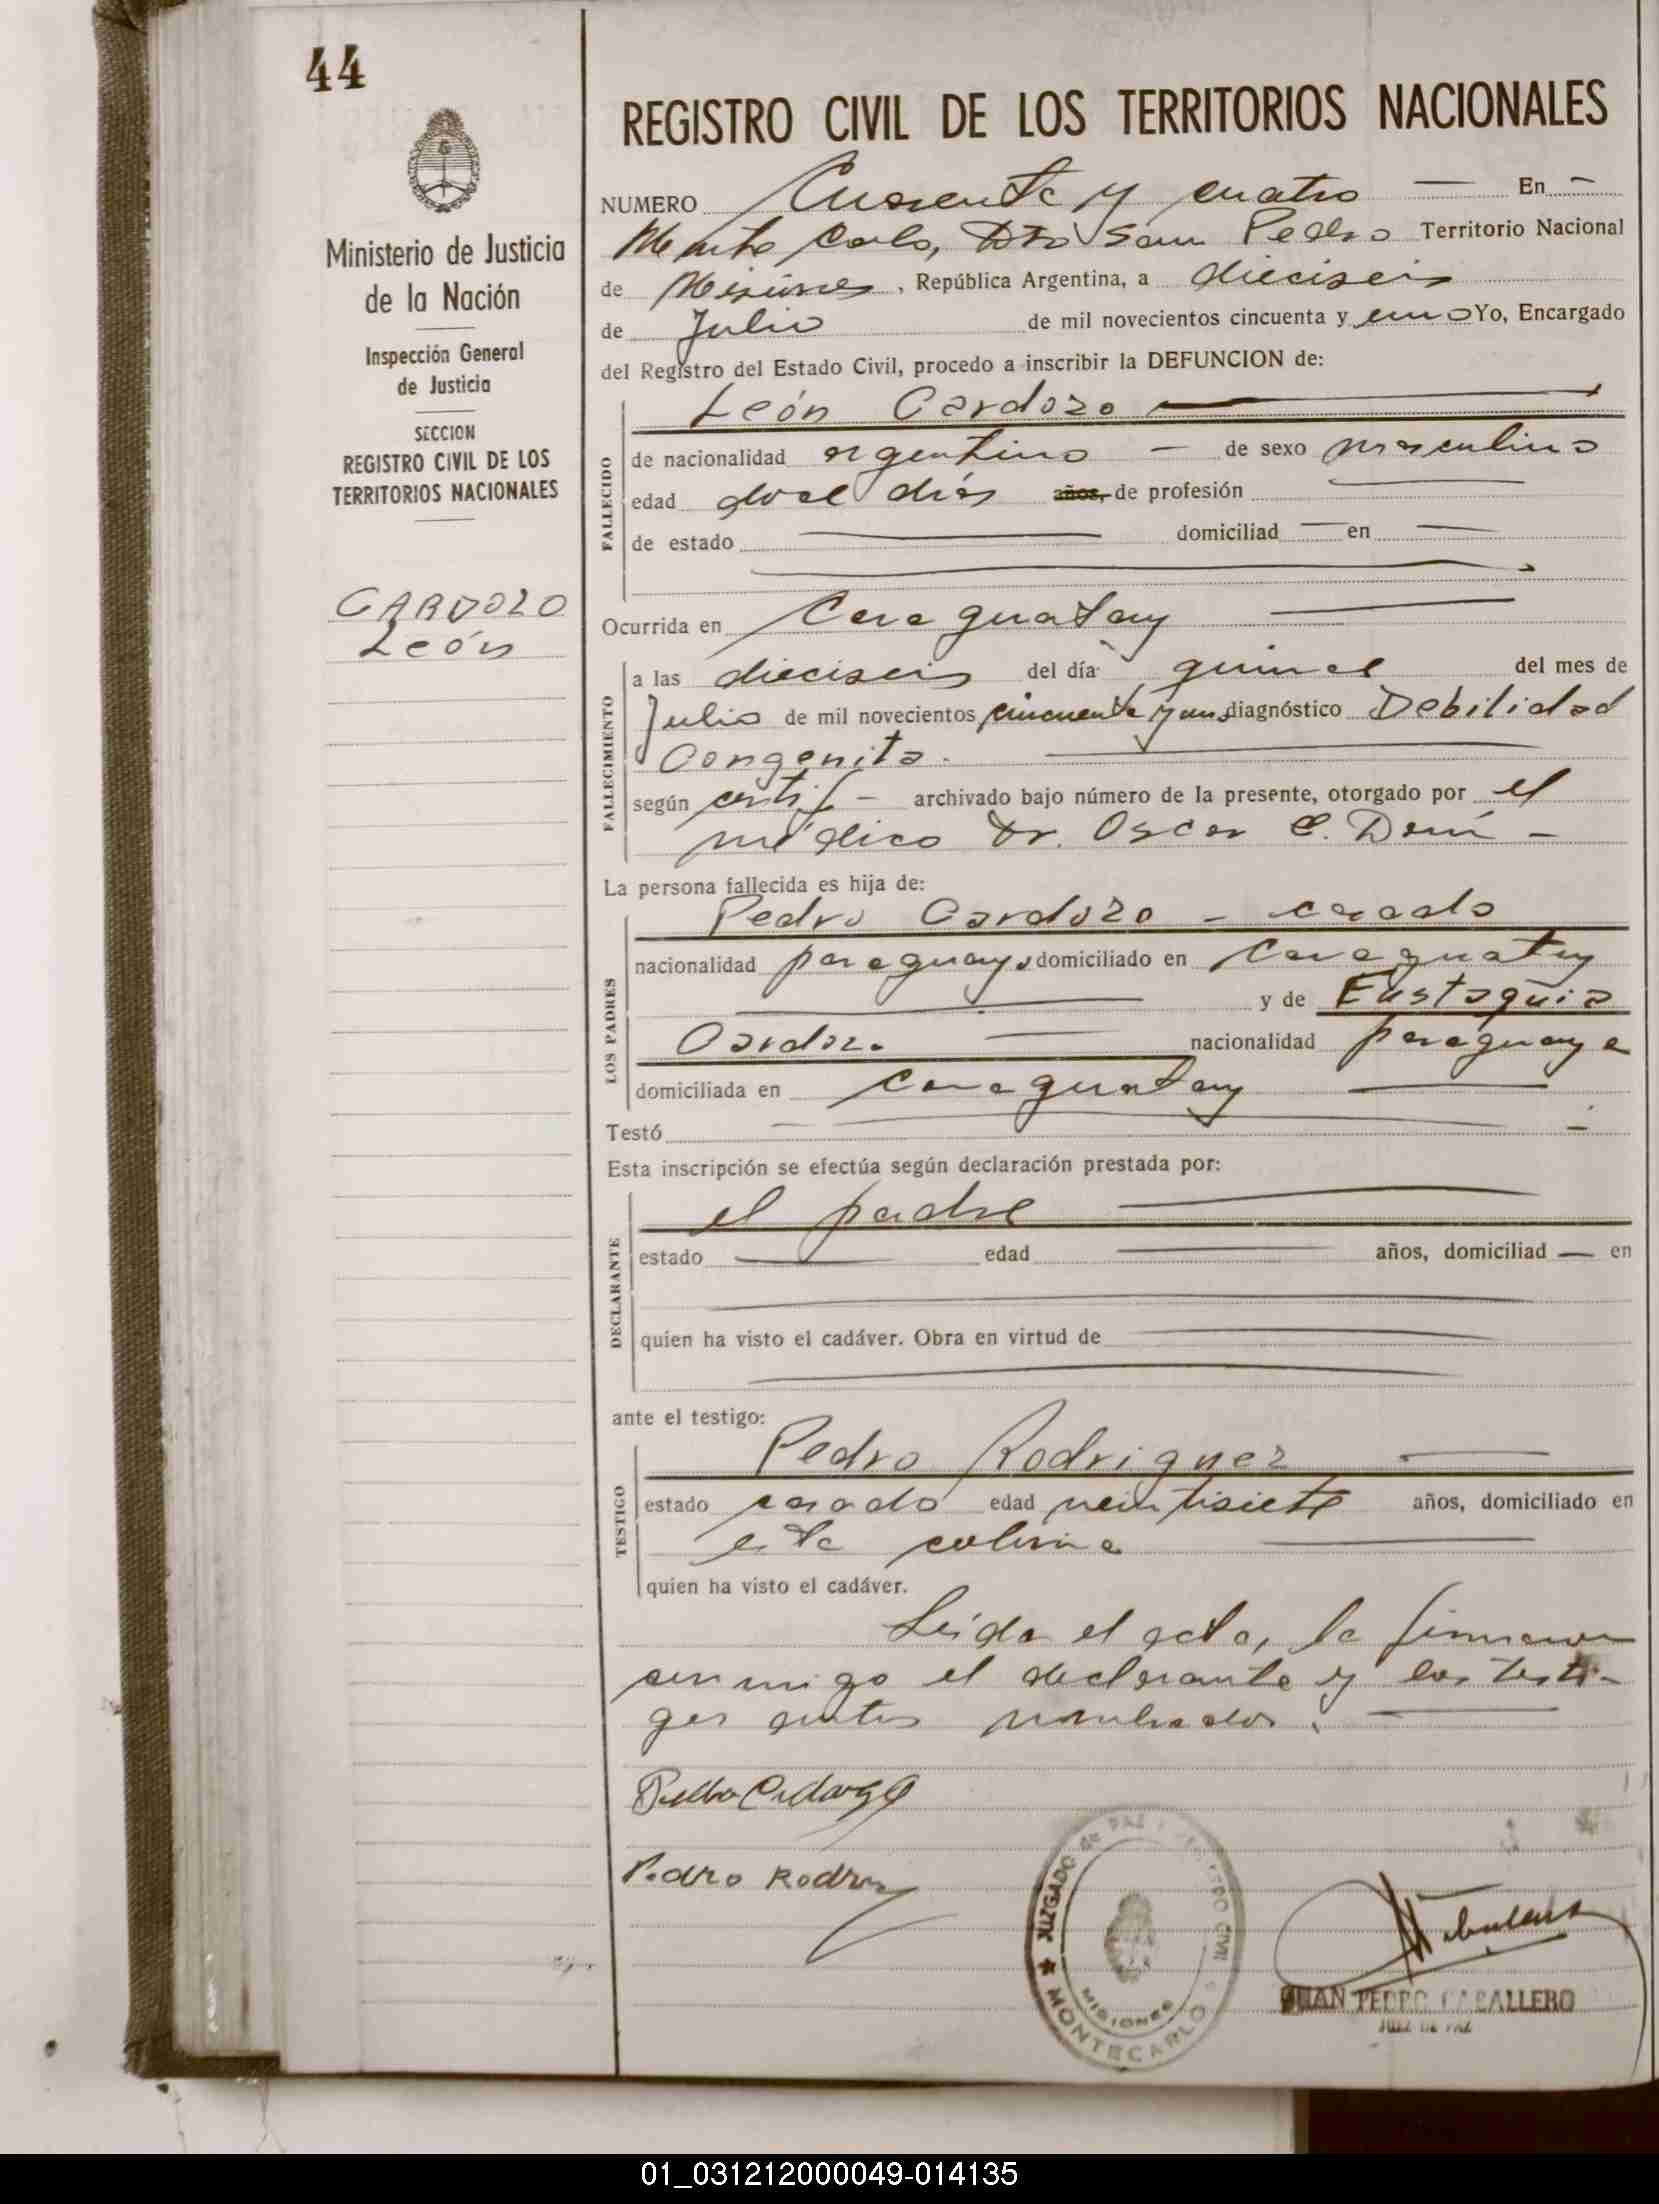 44
REGISTRO CIVIL DE LOS TERRITORIOS NACIONALES
Ministerio de Justicia
de la Nación
Inspección General
de Justicia
SECCION
REGISTRO CIVIL DE LOS
TERRITORIOS NACIONALES
CARDOZO
León
NUMERO Cuarenta y cuatro — En -
Monte Carlo, Dto San Pedro Territorio Nacional
de Misiones, República Argentina, a dieciseis
de Julio de mil novecientos cincuenta y uno Yo, Encargado
del Registro del Estado Civil, procedo a inscribir la DEFUNCION de:
León Cardozo
FALLECIDO
de nacionalidad argentino — de sexo masculino
edad doce días años, de profesión —
de estado — domiciliad — en —
Ocurrida en Caraguatay —
FALLECIMIENTO
a las dieciseis del día quince del mes de
Julio de mil novecientos cincuenta y uno diagnóstico Debilidad
Congenita. —
según certif — archivado bajo número de la presente, otorgado por el
médico Dr. Oscar C.
La persona fallecida es hija de:
LOS PADRES
Pedro Cardozo - casado
nacionalidad paraguayo domiciliado en Caraguatay
— y de Eustaquia
Cardozo — nacionalidad paraguaya
domiciliada en Caraguatay —
Testó —
Esta inscripción se efectúa según declaración prestada por:
DECLARANTE
el padre —
estado — edad — años, domiciliad — en
quien ha visto el cadáver. Obra en virtud de —
ante el testigo:
TESTIGO
Pedro Rodriguez —
estado casado edad veintisiete años, domiciliado en
esta colonia —
quien ha visto el cadáver.
Leida el acta, la firmaron
conmigo el declarante y los testi-
gos antes nombrados. —
Pedro
Pedro Rodri
JUZGADO de PAZ Y REGISTRO CIVIL
MISIONES
★ MONTECARLO
JUAN PEDRO CABALLERO
JUEZ DE PAZ
01_031212000049-014135